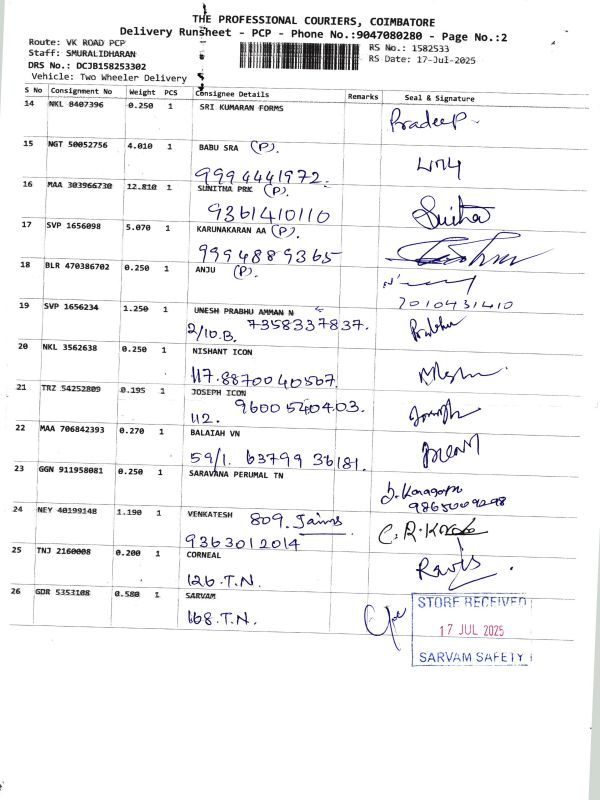 THE PROFESSIONAL COURIERS, COIMBATORE
Delivery Runsheet - PCP - Phone No.:9047080280 - Page No.:2
Route: VK ROAD PCP
Staff: SMURALIDHARAN
DRS No.: DCJB158253302
Vehicle: Two Wheeler Delivery
RS No.: 1582533
RS Date: 17-Jul-2025
S No Consignment No Weight PCS Consignee Details Remarks Seal & Signature
14 NKL 8407396 0.250 1 SRI KUMARAN FORMS
Pradeep
15 NGT 50052756 4.010 1 BABU SRA (P).
9994441972.
16 MAA 303966730 12.810 1 SUNITHA PRK (P).
9361410110
17 SVP 1656098 5.070 1 KARUNAKARAN AA (P).
9994889365
18 BLR 470386702 0.250 1 ANJU (P).
7010431410
19 SVP 1656234 1.250 1 UNESH PRABHU AMMAN N
2/10.B. 7358337837.
Prabhu
20 NKL 3562638 0.250 1 NISHANT ICON
117.8870040507.
21 TRZ 54252809 0.195 1 JOSEPH ICON
112. 9600540403.
Joseph
22 MAA 706842393 0.270 1 BALAIAH VN
59/1. 63799 36181.
23 GGN 911958081 0.250 1 SARAVANA PERUMAL TN
9865009298
24 NEY 40199148 1.190 1 VENKATESH 809. Jains
9363012014
25 TNJ 2160008 0.200 1 CORNEAL
126.T.N.
26 GDR 5353108 0.580 1 SARVAM
168.T.N.
STORE RECEIVED
17 JUL 2025
SARVAM SAFETY